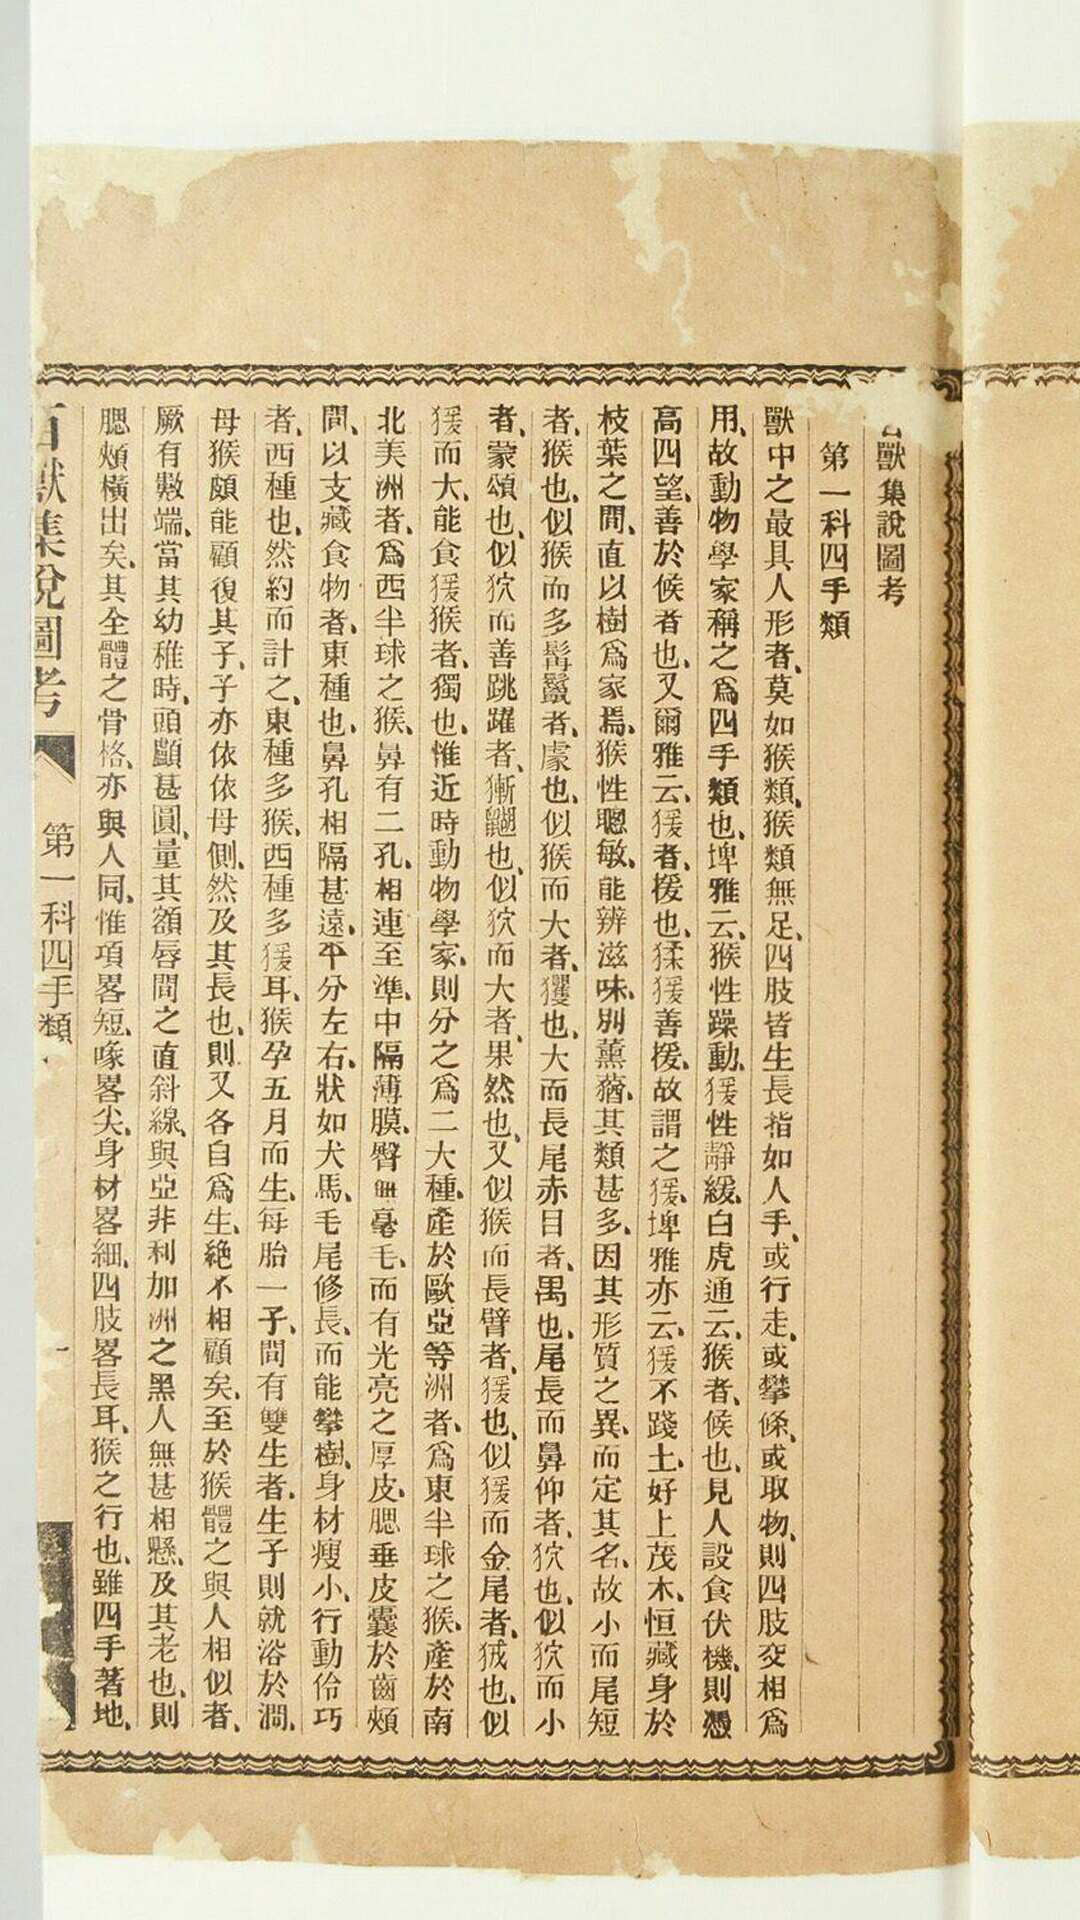 獸集說圖考
第一科四手類
獸中之最具人形者、莫如猴類、猴類無足、四肢皆生長指如人手、或行走、或攀條、或取物、則四肢交相爲
用、故動物學家稱之爲四手類也、埤雅云、猴性躁動、猨性靜緩、白虎通云、猴者、候也、見人設食伏機、則憑
高四望、善於候者也、又爾雅云、猨者、援也、猱猨善援、故謂之猨、埤雅亦云、猨不踐土、好上茂木、恒藏身於
枝葉之間、直以樹爲家焉、猴性聰敏、能辨滋味、別薰蕕、其類甚多、因其形質之異、而定其名、故小而尾短
者、猴也、似猴而多髯鬣者、豦也、似猴而大者、玃也、大而長尾赤目者、禺也、尾長而鼻仰者、狖也、似狖而小
者、蒙頌也、似狖而善跳躍者、獑䶉也、似狖而大者、果然也、又似猴而長臂者、猨也、似猨而金尾者、狨也、似
猨而大、能食猨猴者、獨也、惟近時動物學家、則分之爲二大種、產於歐亞等洲者、爲東半球之猴、產於南
北美洲者、爲西半球之猴、鼻有二孔、相連至準、中隔薄膜、臀無毫毛、而有光亮之厚皮、腮垂皮囊於齒頰
間、以支藏食物者、東種也、鼻孔相隔甚遠、平分左右、狀如犬馬、毛尾修長、而能攀樹、身材瘦小、行動伶巧
者、西種也、然約而計之、東種多猴、西種多猨耳、猴孕五月而生、每胎一子、間有雙生者、生子則就浴於澗、
母猴頗能顧復其子、子亦依依母側、然及其長也、則又各自爲生、絶不相顧矣、至於猴體之與人相似者、
厥有數端、當其幼稚時、頭顱甚圓、量其額唇間之直斜線、與亞非利加洲之黑人無甚相懸、及其老也、則
腮頰橫出矣、其全體之骨格、亦與人同、惟項畧短、喙畧尖、身材畧細、四肢畧長耳、猴之行也、雖四手著地、
百獸集說圖考
第一科四手類
一